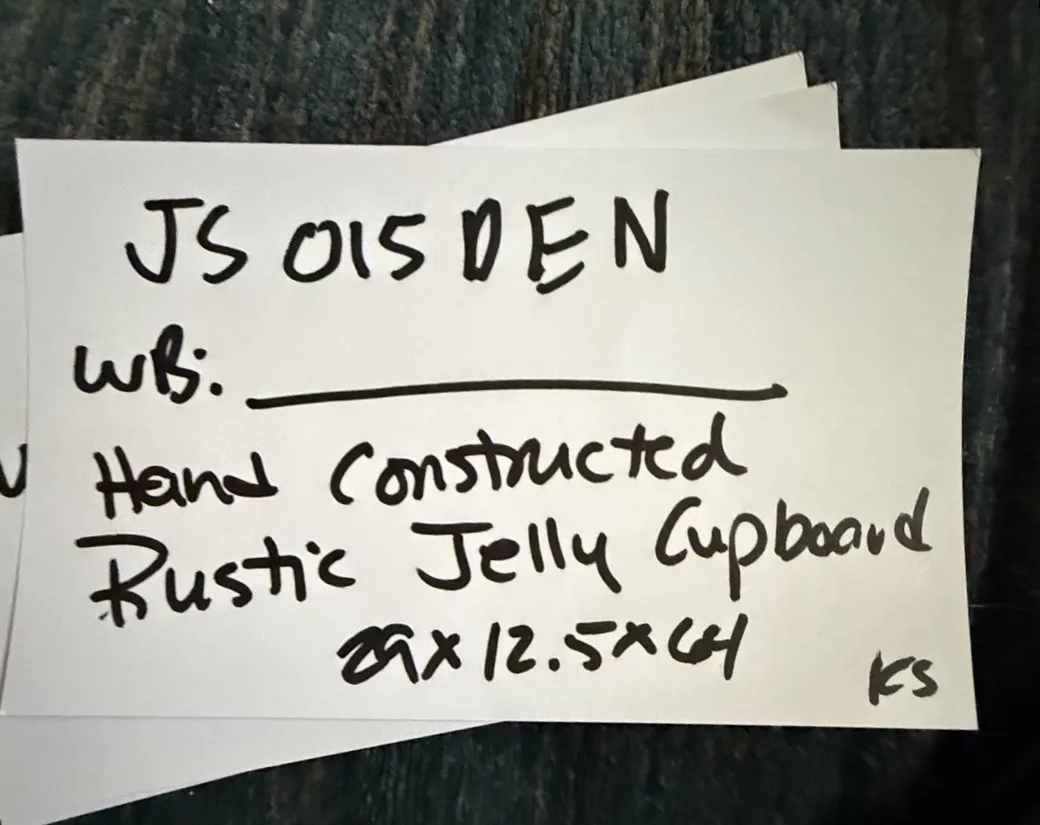 JS 015 DEN
WB: 
Hand Constructed
Rustic Jelly Cupboard
29 x 12.5 x 64
KS